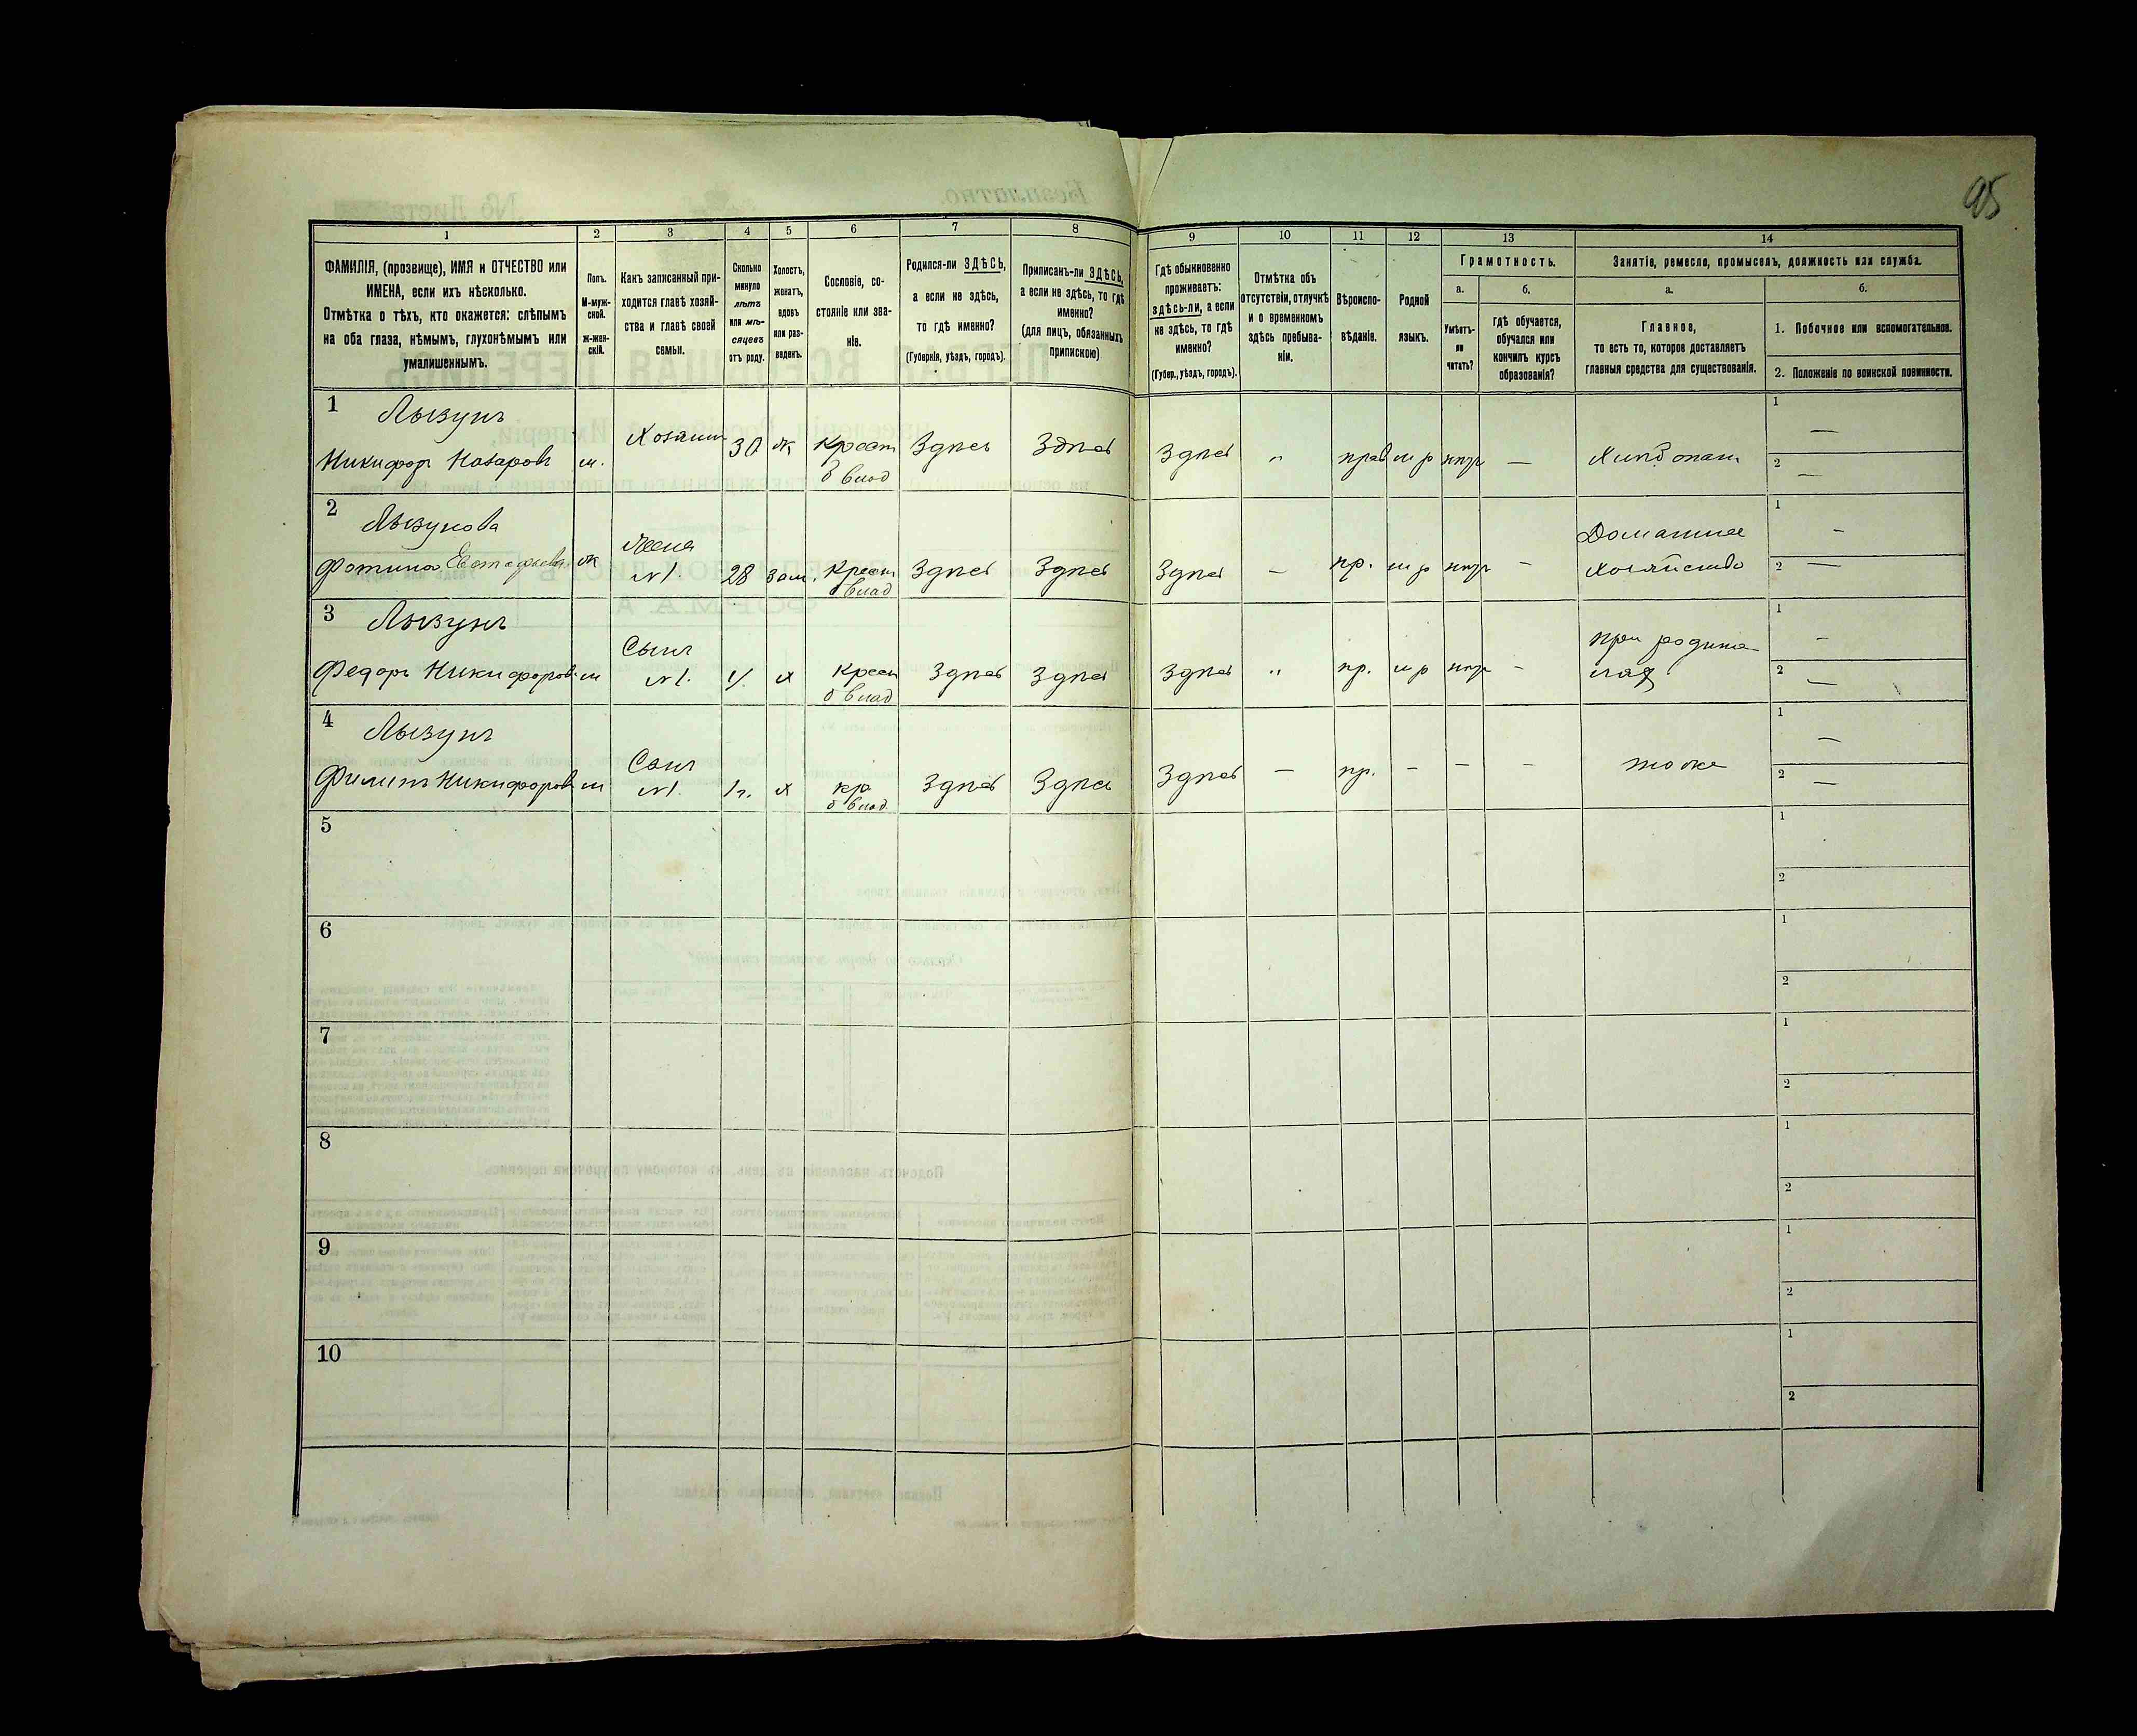 95
1 2 3 4 5 6 7 8 9 10 11 12 13 14
ФАМИЛІЯ, (прозвище), ИМЯ и ОТЧЕСТВО или
ИМЕНА, если ихъ нѣсколько.
Отмѣтка о тѣхъ, кто окажется: слѣпымъ
на оба глаза, нѣмымъ, глухонѣмымъ или
умалишеннымъ.
Полъ.
М-муж-
ской.
Ж-жен-
скій.
Какъ записанный при-
ходится главѣ хозяй-
ства и главѣ своей
семьи.
Сколько
минуло
лѣтъ
или мѣ-
сяцевъ
отъ роду.
Холостъ,
женатъ,
вдовъ
или раз-
веденъ.
Сословіе, со-
стояніе или зва-
ніе.
Родился-ли ЗДѢСЬ,
а если не здѣсь,
то гдѣ именно?
(Губернія, уѣздъ, городъ).
Приписанъ-ли ЗДѢСЬ,
а если не здѣсь, то гдѣ
именно?
(для лицъ, обязанныхъ
припискою)
Гдѣ обыкновенно
проживаетъ:
здѣсь-ли, а если
не здѣсь, то гдѣ
именно?
(Губер., уѣздъ, городъ).
Отмѣтка объ
отсутствіи, отлучкѣ
и о временномъ
здѣсь пребыва-
ніи.
Вѣроиспо-
вѣданіе.
Родной
языкъ.
Грамотность.
а.
Умѣетъ-
ли
читать?
б.
гдѣ обучается,
обучался или
кончилъ курсъ
образованія?
Занятіе, ремесло, промыселъ, должность или служба.
а.
Главное,
то есть то, которое доставляетъ
главныя средства для существованія.
б.
1. Побочное или вспомогательное.
2. Положеніе по воинской повинности.
1 Лызунъ
Никифоръ Назаровъ м. Хозяинъ 30 ж Крест Здпсь Здпсь Здпсь " прав м р нпр — Хлпбопаш 1 —
б влад 2 —
2 Лызунова
Фотина Евстафьева ж Жена 28 зам. Крест Здпсь Здпсь Здпсь — пр. м р нпр - Домашнее 1 -
№1. б влад хозяйство 2 —
3 Лызунъ
Федоръ Никифоров м Сынъ х Крест Здпсь Здпсь Здпсь " пр. м р нпр - При родите 1 -
№1. б влад лях 2 —
4 Лызунъ
Филипъ Никифоров м Сынъ 1 г. х кр Здпсь Здпсь Здпсь — пр. - - - тоже 1 —
№1. б влад 2 —
5 1
2
6 1
2
7 1
2
8 1
2
9 1
2
10 1
2